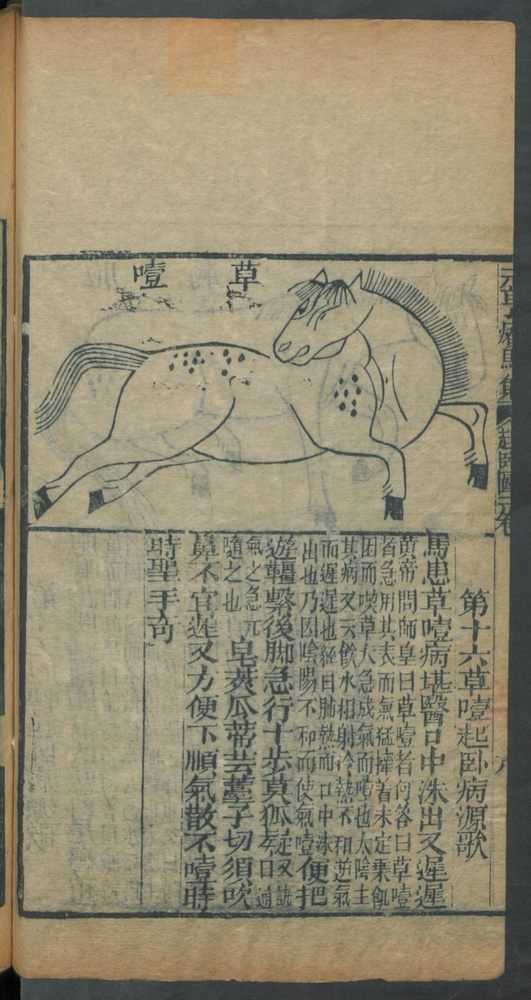 草噎
第十六草噎起卧病源歌
馬患草噎病堪醫口中沫出又遲遲
黄帝問師皇曰草噎者何答曰草噎
者急用其表而無猛掙着未定乗飢
困而喫草大急成氣而噎也太陰主
其病又云飲水相射冷熱不和逆氣
而遲遲也經曰肺熱而口中沫
出也乃因陰陽不和而使氣噎便把
遊韁繫後脚急行十步莫狐疑又訣曰通
氣之急亢隨之也皂莢瓜蒂芸薹子切須吹
鼻不宜遲又方便下順氣散不噎時
時聖手高